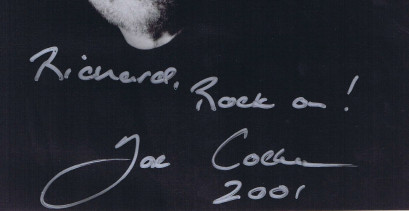 Richard, Rock on!
Joe Cocker
2001